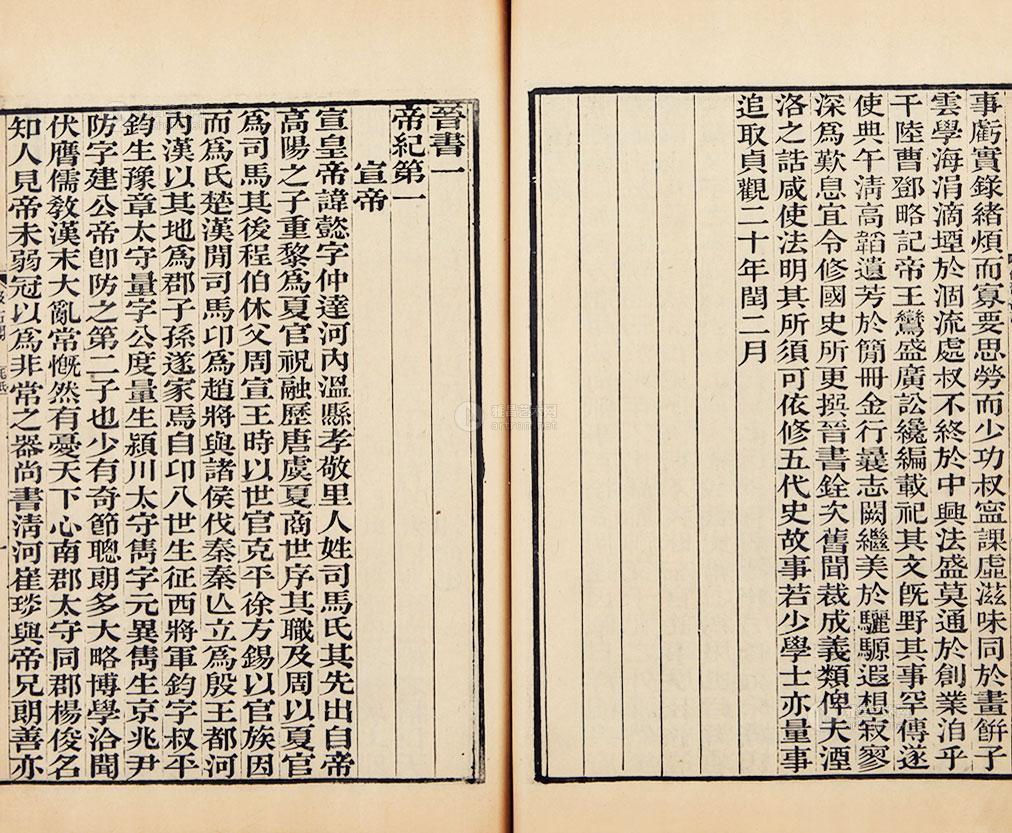 事虧實錄緒煩而寡要思勞而少功叔寧課虛滋味同於畫餅子
雲學海涓滴堙於涸流處叔不終於中興法盛莫通於創業洎乎
干陸曹鄧略記帝王鸞盛廣訟纔編載祀其文旣野其事罕傳遂
使典午淸高韜遺芳於簡冊金行曩志闕繼美於驪騵遐想寂寥
深爲歎息宜令修國史所更撰晉書銓次舊聞裁成義類俾夫湮
洛之誥咸使法明其所須可依修五代史故事若少學士亦量事
追取貞觀二十年閏二月
晉書一
帝紀第一
宣帝
宣皇帝諱懿字仲達河內溫縣孝敬里人姓司馬氏其先出自帝
高陽之子重黎爲夏官祝融歷唐虞夏商世序其職及周以夏官
爲司馬其後程伯休父周宣王時以世官克平徐方錫以官族因
而爲氏楚漢閒司馬卬爲趙將與諸侯伐秦秦亾立爲殷王都河
內漢以其地爲郡子孫遂家焉自卬八世生征西將軍鈞字叔平
鈞生豫章太守量字公度量生潁川太守雋字元異雋生京兆尹
防字建公帝卽防之第二子也少有奇節聰朗多大略博學洽聞
伏膺儒敎漢末大亂常慨然有憂天下心南郡太守同郡楊俊名
知人見帝未弱冠以爲非常之器尚書淸河崔琰與帝兄朗善亦
雅昌艺术网
artron.net